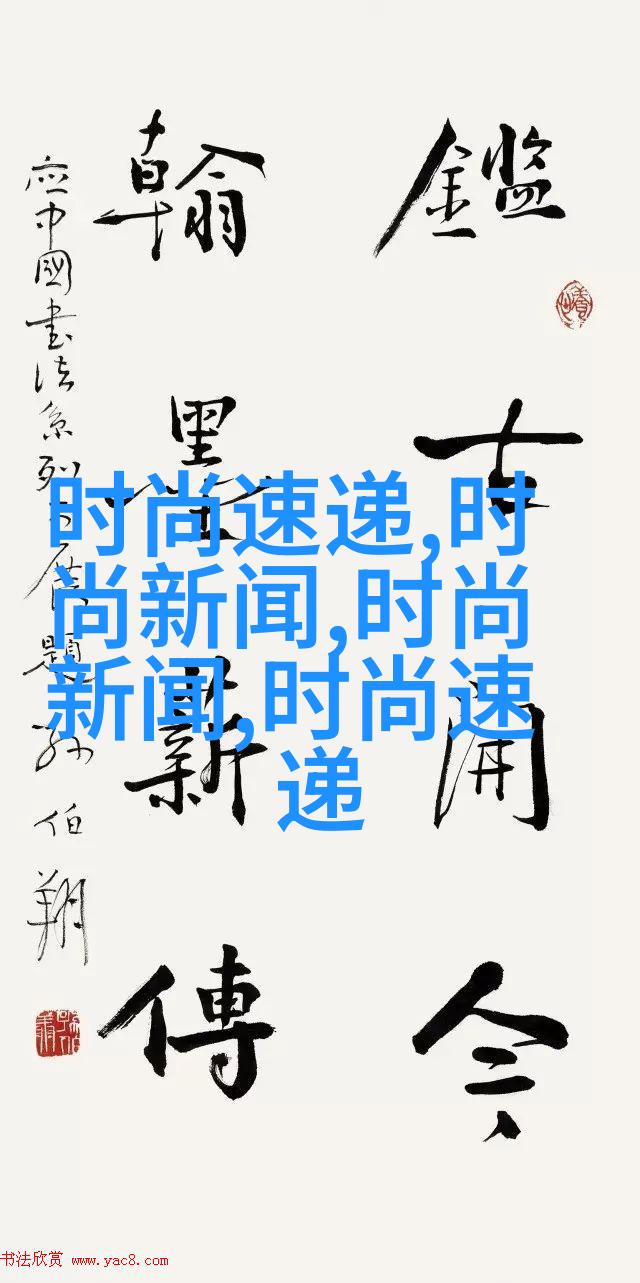 鑑古開今
翰墨薪傳
应中國書法系列展題孙伯翔
时尚速递,时
尚新闻,时尚
新闻,时尚速
递
书法欣赏 www.yac8.com